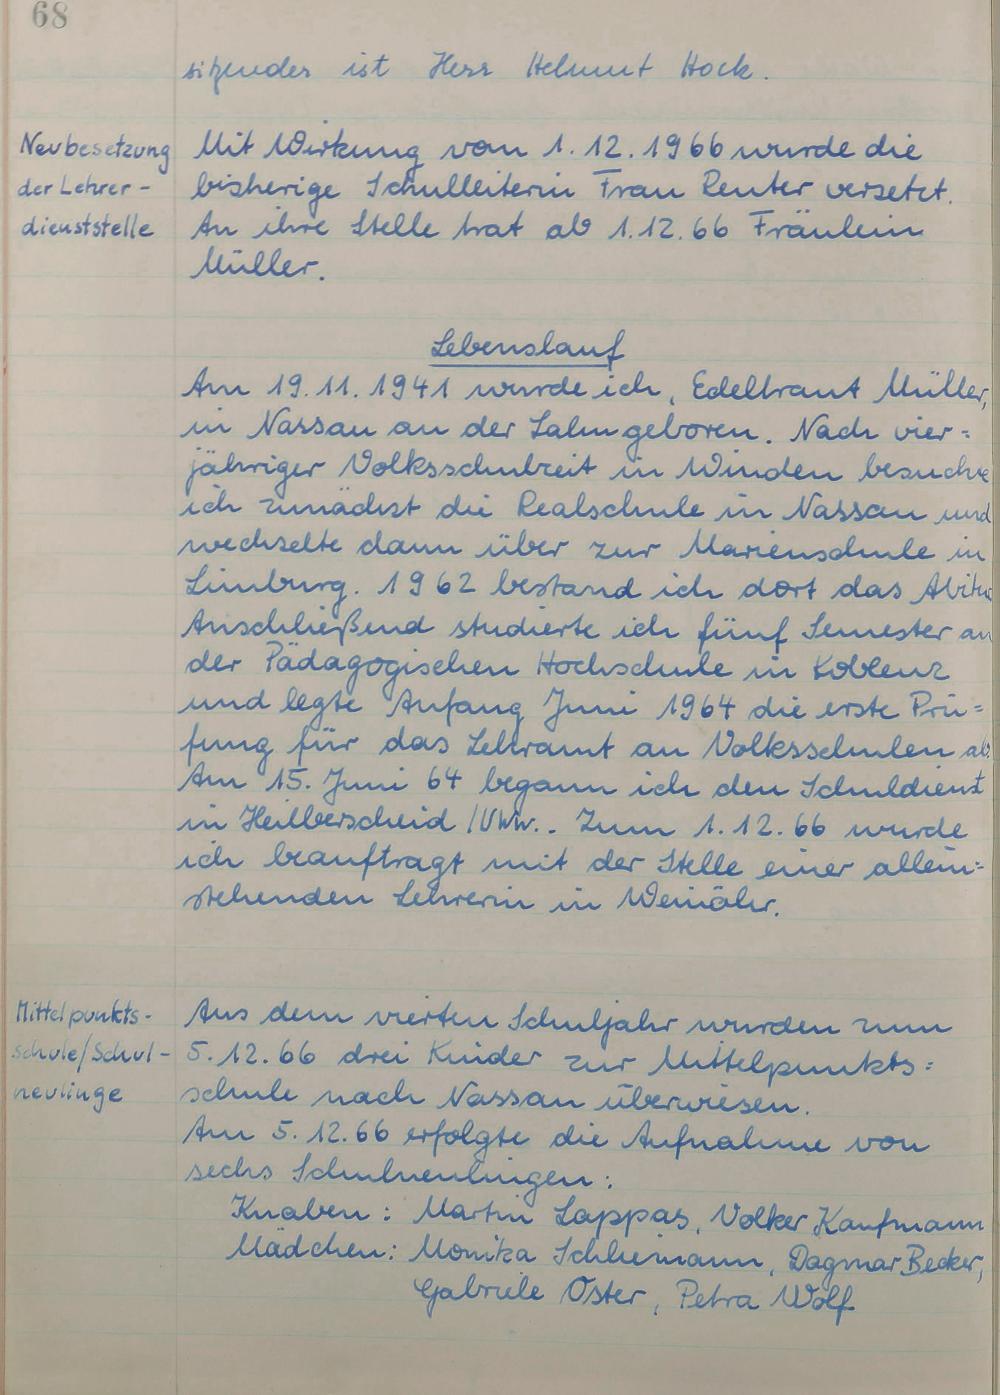 68
sitzender ist Herr Helmut Hock.
Neubesetzung
der Lehrer-
dienststelle
Mit Wirkung vom 1.12.1966 wurde die
bisherige Schulleiterin Frau Reuter versetzt.
An ihre Stelle trat ab 1.12.66 Fräulein
Müller.
Lebenslauf
Am 19.11.1941 wurde ich, Edeltraut Müller,
in Nassau an der Lahn geboren. Nach vier=
jähriger Volksschulzeit in Winden besuchte
ich zunächst die Realschule in Nassau und
wechselte dann über zur Marienschule in
Limburg. 1962 bestand ich dort das Abitur
Anschließend studierte ich fünf Semester an
der Pädagogischen Hochschule in Koblenz
und legte Anfang Juni 1964 die erste Prü=
fung für das Lehramt an Volksschulen ab.
Am 15. Juni 64 begann ich den Schuldienst
in Heilberscheid /UWw.. Zum 1.12.66 wurde
ich beauftragt mit der Stelle einer allein=
stehenden Lehrerin in Weinähr.
Mittelpunkts-
schule/Schul-
neulinge
Aus dem vierten Schuljahr wurden zum
5.12.66 drei Kinder zur Mittelpunkts=
schule nach Nassau überwiesen.
Am 5.12.66 erfolgte die Aufnahme von
sechs Schulneulingen:
Knaben: Martin Lappas, Volker Kaufmann
Mädchen: Monika Schliemann, Dagmar Becker,
Gabriele Oster, Petra Wolf